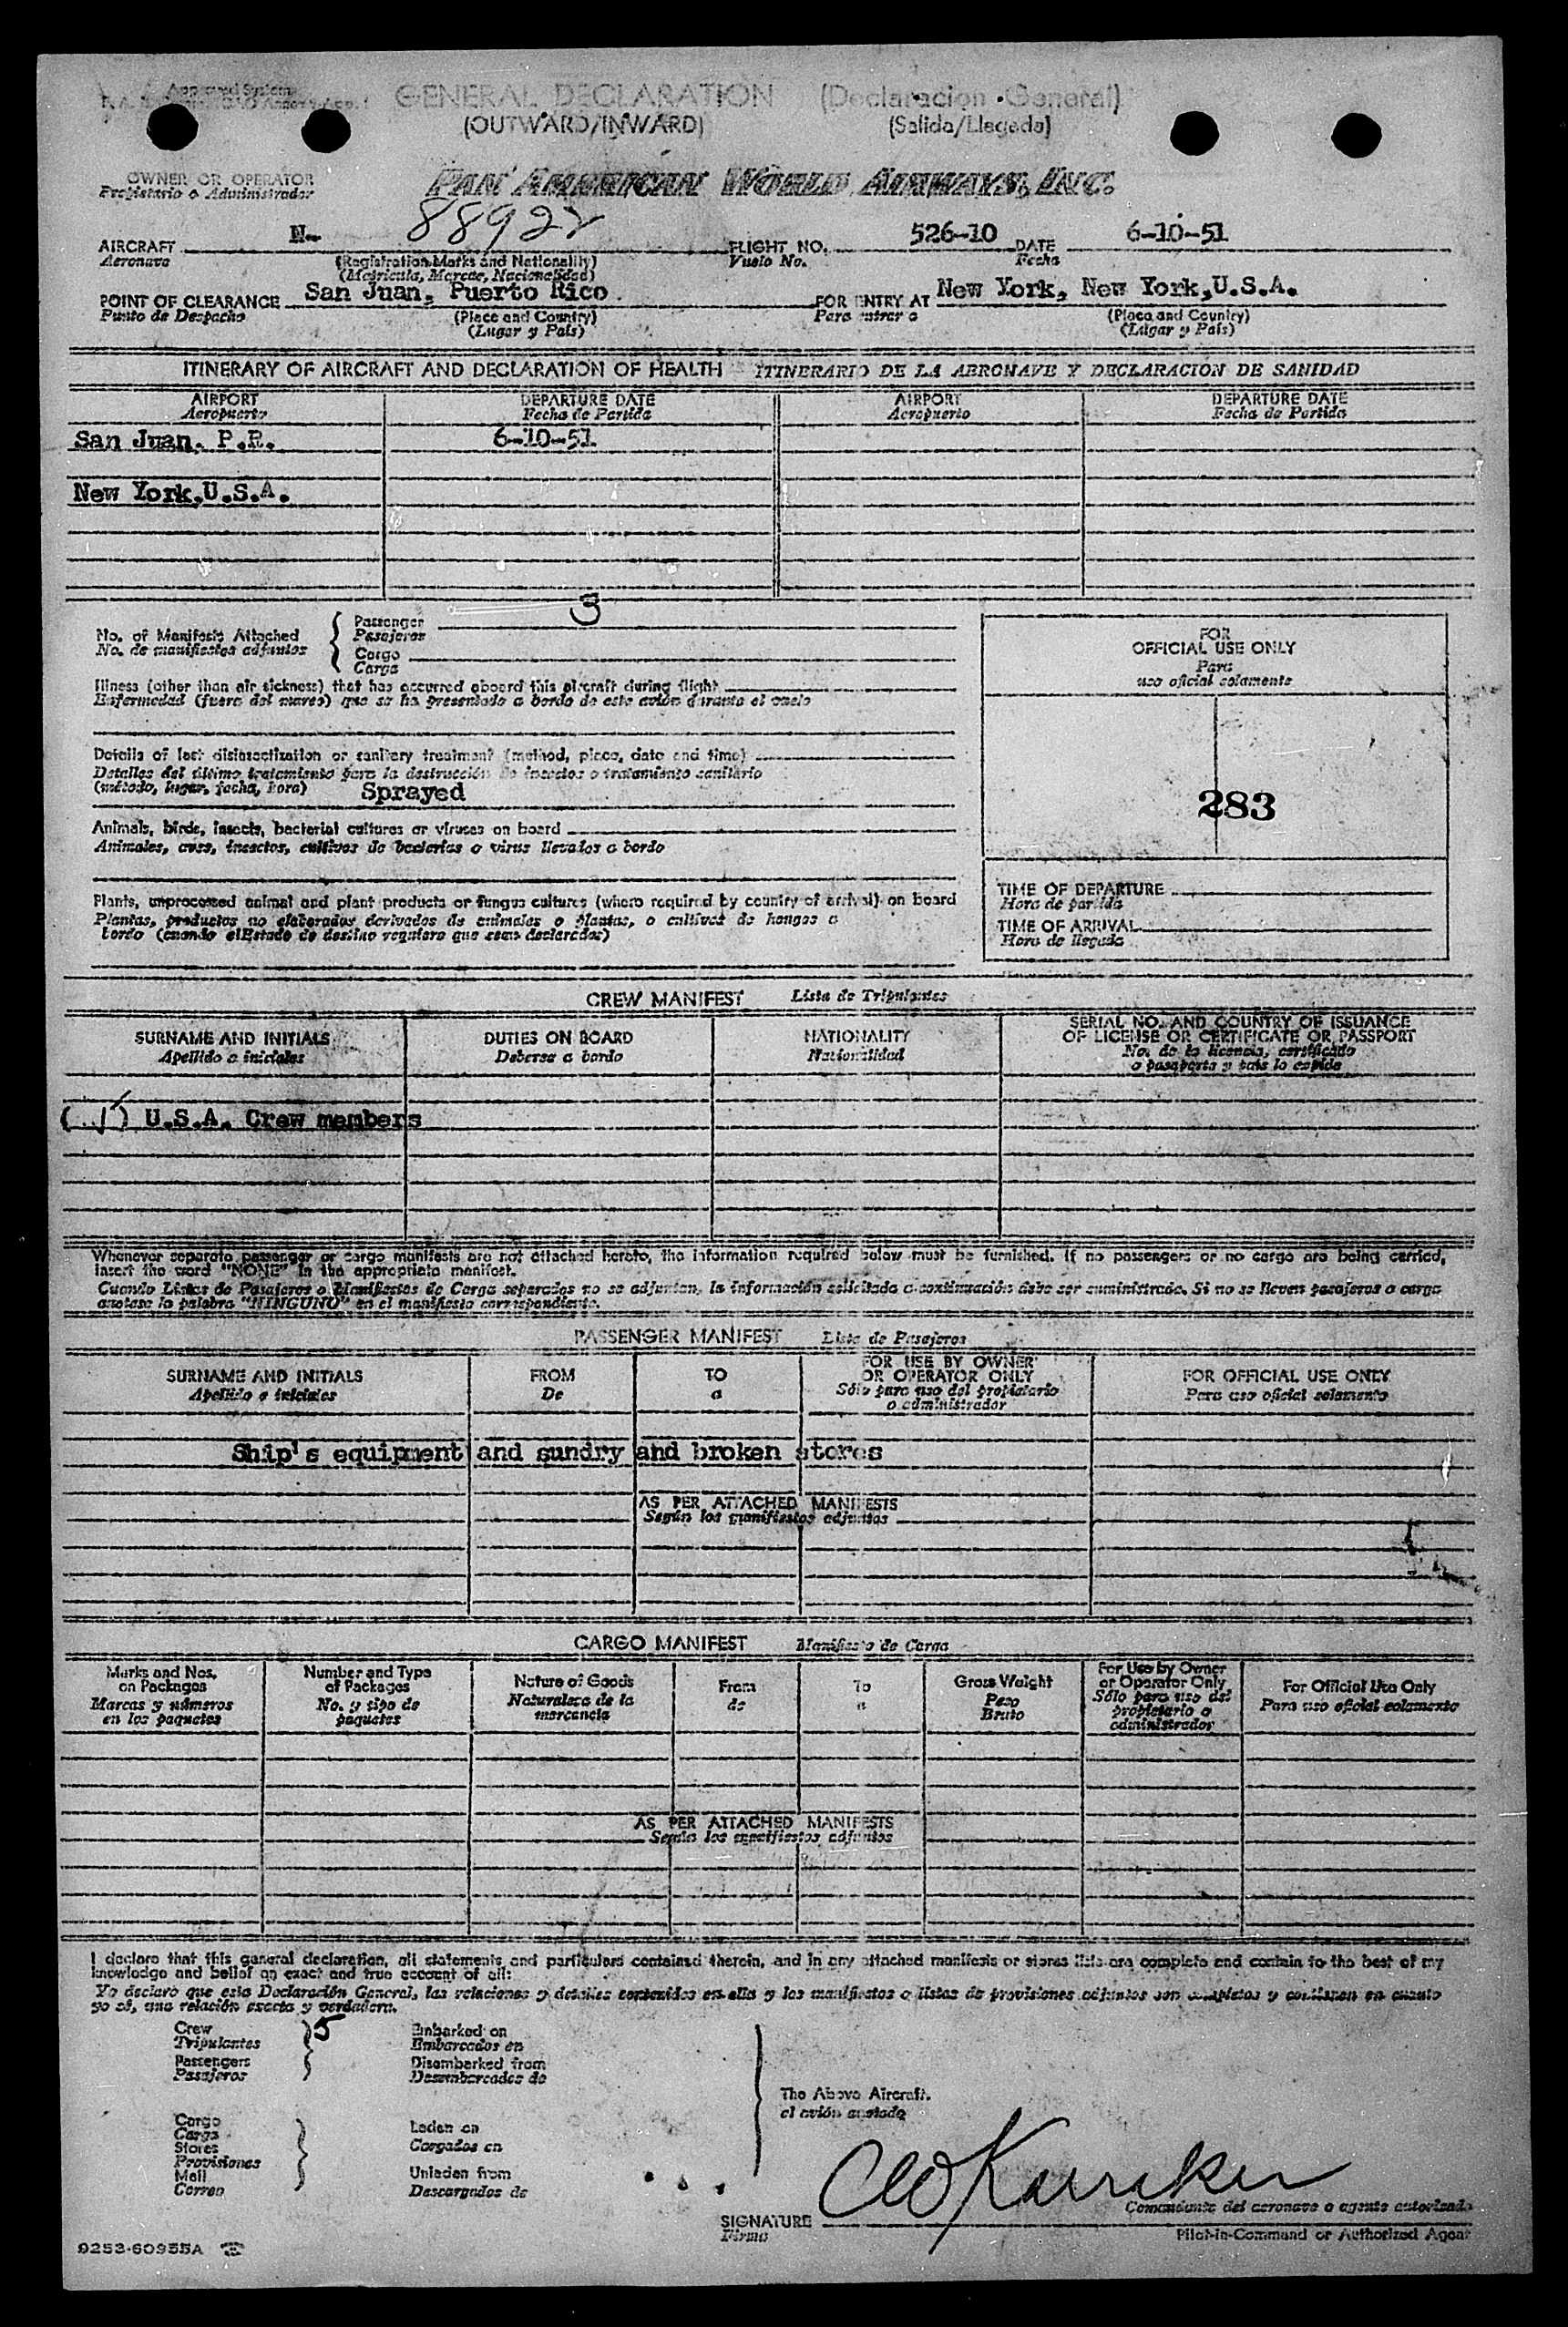 Approved System
GENERAL DECLARATION (Declaracion General)
(OUTWARD/INWARD) (Salida/Llegada)
OWNER OR OPERATOR
Propietario o Administrador
PAN AMERICAN WORLD AIRWAYS, INC.
AIRCRAFT N- 88922 FLIGHT NO. 526-10 DATE 6-10-51
Aeronave (Registration Marks and Nationality) Vuelo No. Fecha
(Matricula, Marcas, Nacionalidad)
POINT OF CLEARANCE San Juan, Puerto Rico FOR ENTRY AT New York, New York,U.S.A.
Punto de Despacho (Place and Country) Para entrar a (Place and Country)
(Lugar y País) (Lugar y País)
ITINERARY OF AIRCRAFT AND DECLARATION OF HEALTH ITINERARIO DE LA AERONAVE Y DECLARACION DE SANIDAD
AIRPORT DEPARTURE DATE AIRPORT DEPARTURE DATE
Aeropuerto Fecha de Partida Aeropuerto Fecha de Partida
San Juan, P.R. 6-10-51
New York,U.S.A.
3
No. of Manifests Attached Passenger
No. de manifiestos adjuntos Pasajeros
Cargo
Carga
FOR
OFFICIAL USE ONLY
Para
uso oficial solamente
Illness (other than air sickness) that has occurred aboard this aircraft during flight
Enfermedad (fuera del mareo) que se ha presentado a bordo de este avión durante el vuelo
Details of last disinsectization or sanitary treatment (method, place, date and time)
Detalles del último tratamiento para la destrucción de insectos o tratamiento sanitario
(método, lugar, fecha, hora) Sprayed
283
Animals, birds, insects, bacterial cultures or viruses on board
Animales, aves, insectos, cultivos de bacterias o virus llevados a bordo
Plants, unprocessed animal and plant products or fungus cultures (where required by country of arrival) on board
Plantas, productos no elaborados derivados de animales o plantas, o cultivos de hongos a
bordo (cuando el Estado de destino requiera que sean declarados)
TIME OF DEPARTURE
Hora de partida
TIME OF ARRIVAL
Hora de llegada
CREW MANIFEST Lista de Tripulantes
SURNAME AND INITIALS DUTIES ON BOARD NATIONALITY SERIAL NO. AND COUNTRY OF ISSUANCE
OF LICENSE OR CERTIFICATE OR PASSPORT
Apellido e iniciales Deberes a bordo Nacionalidad No. de la licencia, certificado
o pasaporte y país lo expide
( √ ) U.S.A. Crew members
Whenever separate passenger or cargo manifests are not attached hereto, the information required below must be furnished. If no passengers or no cargo are being carried,
insert the word "NONE" in the appropriate manifest.
Cuando Listas de Pasajeros o Manifiestos de Carga separados no se adjuntan, la información solicitada a continuación debe ser suministrada. Si no se lleven pasajeros o carga
anótese la palabra "NINGUNO" en el manifiesto correspondiente.
PASSENGER MANIFEST Lista de Pasajeros
SURNAME AND INITIALS FROM TO FOR USE BY OWNER FOR OFFICIAL USE ONLY
OR OPERATOR ONLY
Apellido e iniciales De a Sólo para uso del propietario Para uso oficial solamente
o administrador
Ship's equipment and sundry and broken stores
AS PER ATTACHED MANIFESTS
Según los manifiestos adjuntos
CARGO MANIFEST Manifiesto de Carga
Marks and Nos. on Packages
Marcas y números en los paquetes
Number and Type of Packages
No. y tipo de paquetes
Nature of Goods
Naturaleza de la mercancía
From
de
To
a
Gross Weight
Peso Bruto
For Use by Owner or Operator Only
Sólo para uso del propietario o administrador
For Official Use Only
Para uso oficial solamente
AS PER ATTACHED MANIFESTS
Según los manifiestos adjuntos
I declare that this general declaration, all statements and particulars contained therein, and in any attached manifests or stores lists are complete and contain to the best of my
knowledge and belief an exact and true account of all:
Yo declaro que esta Declaración General, las relaciones y detalles contenidos en ella y los manifiestos o listas de provisiones adjuntos son completos y contienen en cuanto
yo sé, una relación exacta y verdadera.
Crew 5 Embarked on
Tripulantes Embarcados en
Passengers Disembarked from
Pasajeros Desembarcados de
The Above Aircraft.
el avión anotado
Cargo
Carga Laden on
Stores Cargados en
Provisiones
Mail Unladen from
Correo Descargados de
SIGNATURE
Firma
Comandante del aeronave o agente autorizado
Pilot-in-Command or Authorized Agent
9253-60955A